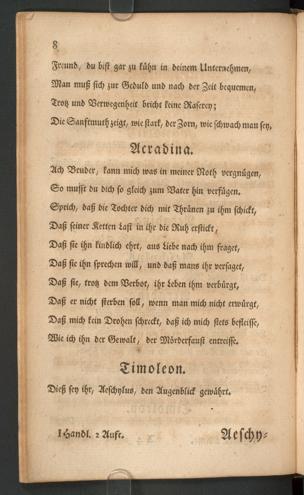 8
Freund, du bist gar zu kühn in deinem Unternehmen,
Man muß sich zur Geduld und nach der Zeit bequemen,
Trotz und Verwegenheit bricht keine Raserey;
Die Sanftmuth zeigt, wie stark, der Zorn, wie schwach man sey,
Acradina.
Ach Bruder, kann mich was in meiner Noth vergnügen,
So mußt du dich so gleich zum Vater hin verfügen.
Sprich, daß die Tochter dich mit Thränen zu ihm schickt,
Daß seiner Ketten Last in ihr die Ruh erstickt,
Daß sie ihn kindlich ehrt, aus Liebe nach ihm fraget,
Daß sie ihn sprechen will, und daß mans ihr versaget,
Daß sie, trotz dem Verbot, ihr Leben ihm verbürgt,
Daß er nicht sterben soll, wenn man mich nicht erwürgt,
Daß mich kein Drohen schreckt, daß ich mich stets befleisse,
Wie ich ihn der Gewalt, der Mörderfaust entreisse.
Timoleon.
Dieß sey ihr, Aeschylus, den Augenblick gewährt.
I Handl. 2 Auft.
Aeschy-